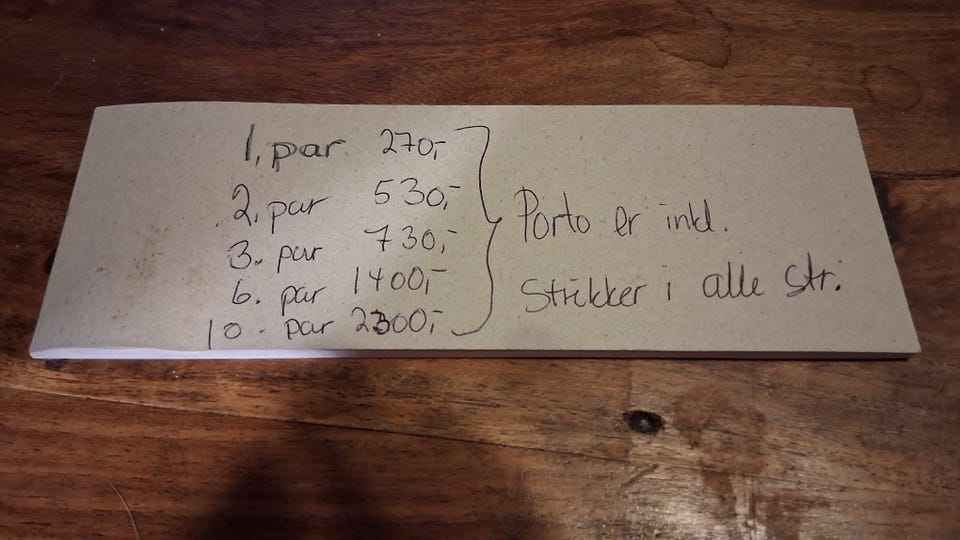 1, par 270,-
2, par 530,-
3. par 730,-
6. par 1400,-
10. par 2300,-
Porto er inkl.
Strikker i alle str.